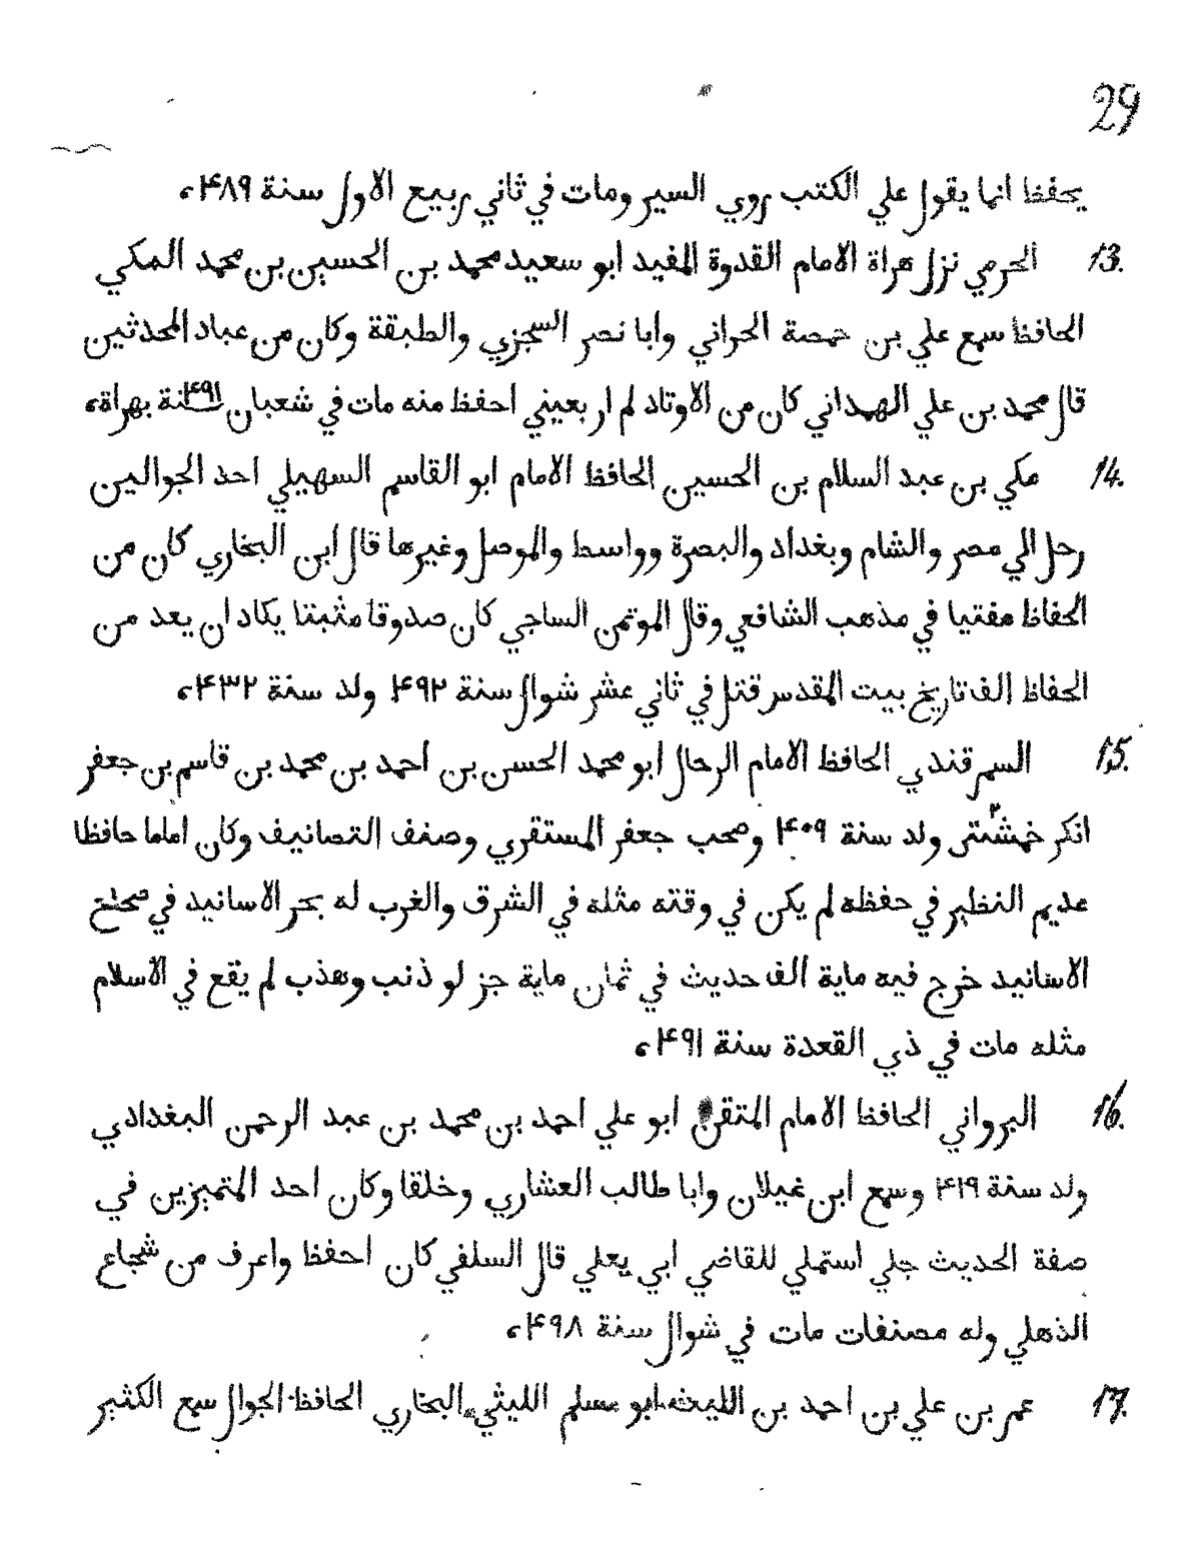 29
يحفظ انما يقول علي الكتب روي السير ومات في ثاني ربيع الاول سنة ۴۸۹،
13. الحرمي نزل هراة الامام القدوة المفيد ابو سعيد محمد بن الحسين بن محمد المكي
الحافظ سمع علي بن حمصة الحراني وابا نصر السجزي والطبقة وكان من عباد المحدثين
قال محمد بن علي الهمداني كان من الاوتاد لم ار بعيني احفظ منه مات في شعبان سنة ۴۹۱ بهراة،
14. مكي بن عبد السلام بن الحسين الحافظ الامام ابو القاسم السهيلي احد الجوالين
رحل الي مصر والشام وبغداد والبصرة وواسط والموصل وغيرها قال ابن البخاري كان من
الحفاظ مفتيا في مذهب الشافعي وقال الموتمن الساجي كان صدوقا مثبتا يكاد ان يعد من
الحفاظ الف تاريخ بيت المقدس قتل في ثاني عشر شوال سنة ۴۹۲ ولد سنة ۴۳۲،
15. السمرقندي الحافظ الامام الرحال ابو محمد الحسن بن احمد بن محمد بن قاسم بن جعفر
انكر ولد سنة ۴۰۹ وصحب جعفر المستقري وصنف التصانيف وكان اماما حافظا
عديم النظير في حفظه لم يكن في وقته مثله في الشرق والغرب له بحر الاسانيد في
الاسانيد خرج فيه ماية الف حديث في ثمان ماية جز لو ذنب وهذب لم يقع في الاسلام
مثله مات في ذي القعدة سنة ۴۹۱،
16. البرواني الحافظ الامام المتقن ابو علي احمد بن محمد بن عبد الرحمن البغدادي
ولد سنة ۴۱۹ وسمع ابن غيلان وابا طالب العشاري وخلقا وكان احد المتميزين في
صفة الحديث جلي استملي للقاضي ابي يعلي قال السلفي كان احفظ واعرف من شجاع
الذهلي وله مصنفات مات في شوال سنة ۴۹۸،
17. عمر بن علي بن احمد بن الليث ابو مسلم الليثي البخاري الحافظ الجوال سمع الكثير